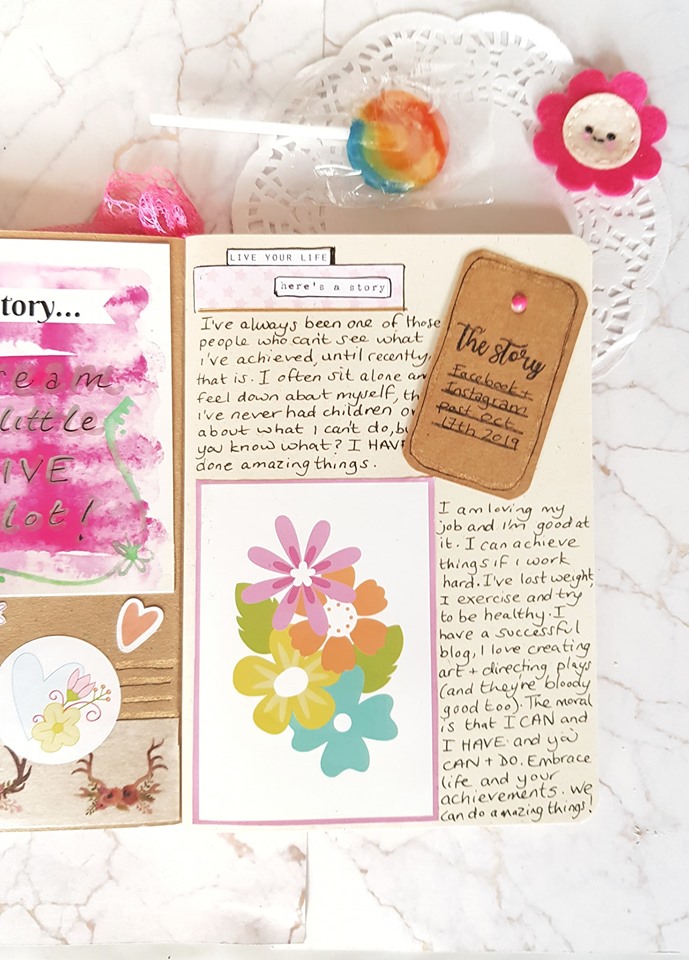 tory...
ream
little
IVE
lot!
LIVE YOUR LIFE
here's a story
I've always been one of those
people who can't see what
i've achieved, until recently,
that is. I often sit alone an
feel down about myself, th
i've never had children or
about what I can't do, bu
you know what? I HAVE
done amazing things.
The story
Facebook +
Instagram
post Oct
17th 2019
I am loving my
job and i'm good at
it. I can achieve
things if i work
hard. I've lost weight,
I exercise and try
to be healthy. I
have a successful
blog, I love creating
art + directing plays
(and they're bloody
good too). The moral
is that I CAN and
I HAVE and you
CAN + DO. Embrace
life and your
achievements. We
can do amazing things!